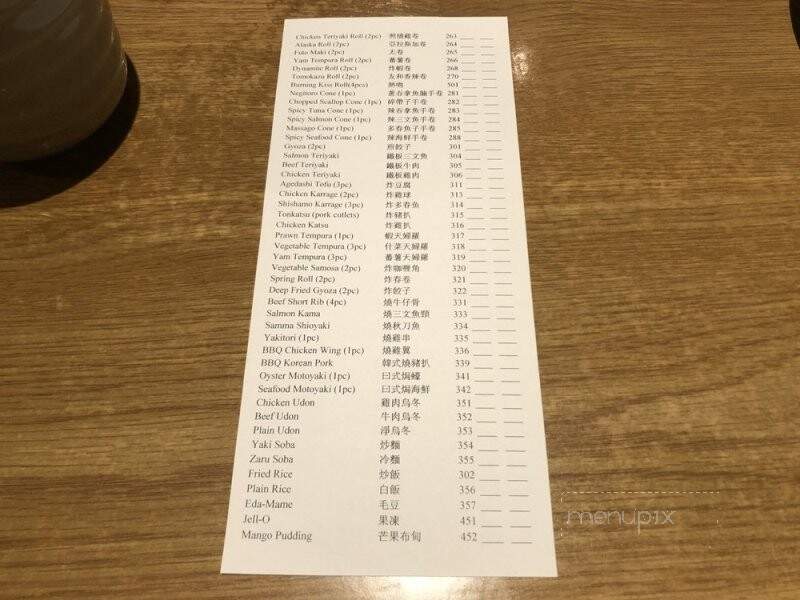 Chicken Teriyaki Roll (2pc) 照燒雞卷 263 __ __
Alaska Roll (2pc) 亞拉斯加卷 264 __ __
Futo Maki (2pc) 太卷 265 __ __
Yam Tempura Roll (2pc) 蕃薯卷 266 __ __
Dynamite Roll (2pc) 炸蝦卷 268 __ __
Tomokazu Roll (2pc) 友和香辣卷 270 __ __
Burning Kiss Roll(4pcs) 熱吻 501 __ __
Negitoro Cone (1pc) 蔥吞拿魚腩手卷 281 __ __
Chopped Scallop Cone (1pc) 碎帶子手卷 282 __ __
Spicy Tuna Cone (1pc) 辣吞拿魚手卷 283 __ __
Spicy Salmon Cone (1pc) 辣三文魚手卷 284 __ __
Massago Cone (1pc) 多春魚子手卷 285 __ __
Spicy Seafood Cone (1pc) 辣海鮮手卷 288 __ __
Gyoza (2pc) 煎餃子 301 __ __
Salmon Teriyaki 鐵板三文魚 304 __ __
Beef Teriyaki 鐵板牛肉 305 __ __
Chicken Teriyaki 鐵板雞肉 306 __ __
Agedashi Tofu (3pc) 炸豆腐 311 __ __
Chicken Karrage (2pc) 炸雞球 313 __ __
Shishamo Karrage (3pc) 炸多春魚 314 __ __
Tonkatsu (pork cutlets) 炸豬扒 315 __ __
Chicken Katsu 炸雞扒 316 __ __
Prawn Tempura (1pc) 蝦天婦羅 317 __ __
Vegetable Tempura (3pc) 什菜天婦羅 318 __ __
Yam Tempura (3pc) 蕃薯天婦羅 319 __ __
Vegetable Samosa (2pc) 炸咖喱角 320 __ __
Spring Roll (2pc) 炸春卷 321 __ __
Deep Fried Gyoza (2pc) 炸餃子 322 __ __
Beef Short Rib (4pc) 燒牛仔骨 331 __ __
Salmon Kama 燒三文魚頸 333 __ __
Samma Shioyaki 燒秋刀魚 334 __ __
Yakitori (1pc) 燒雞串 335 __ __
BBQ Chicken Wing (1pc) 燒雞翼 336 __ __
BBQ Korean Pork 韓式燒豬扒 339 __ __
Oyster Motoyaki (1pc) 日式焗蠔 341 __ __
Seafood Motoyaki (1pc) 日式焗海鮮 342 __ __
Chicken Udon 雞肉烏冬 351 __ __
Beef Udon 牛肉烏冬 352 __ __
Plain Udon 淨烏冬 353 __ __
Yaki Soba 炒麵 354 __ __
Zaru Soba 冷麵 355 __ __
Fried Rice 炒飯 302 __ __
Plain Rice 白飯 356 __ __
Eda-Mame 毛豆 357 __ __
Jell-O 果凍 451 __ __
Mango Pudding 芒果布甸 452 __ __
menupix